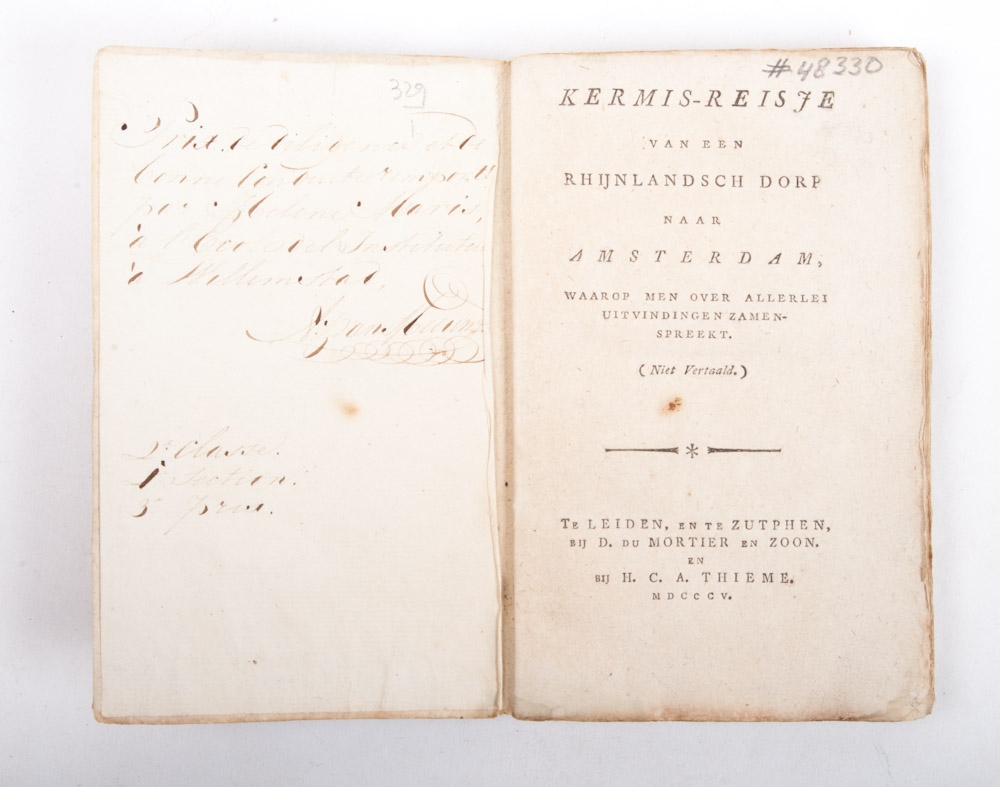 329
Prix de diligence et de
bonne Conduite remporté
par Helene Maris,
à l'Ecole et Institut
à Willemstad,
2e Classe.
1 Section.
3e prix.
#48330
KERMIS-REISJE
VAN EEN
RHIJNLANDSCH DORP
NAAR
AMSTERDAM,
WAAROP MEN OVER ALLERLEI
UITVINDINGEN ZAMEN-
SPREEKT.
(Niet Vertaald.)
TE LEIDEN, EN TE ZUTPHEN,
BIJ D. DU MORTIER EN ZOON.
EN
BIJ H. C. A. THIEME.
MDCCCV.